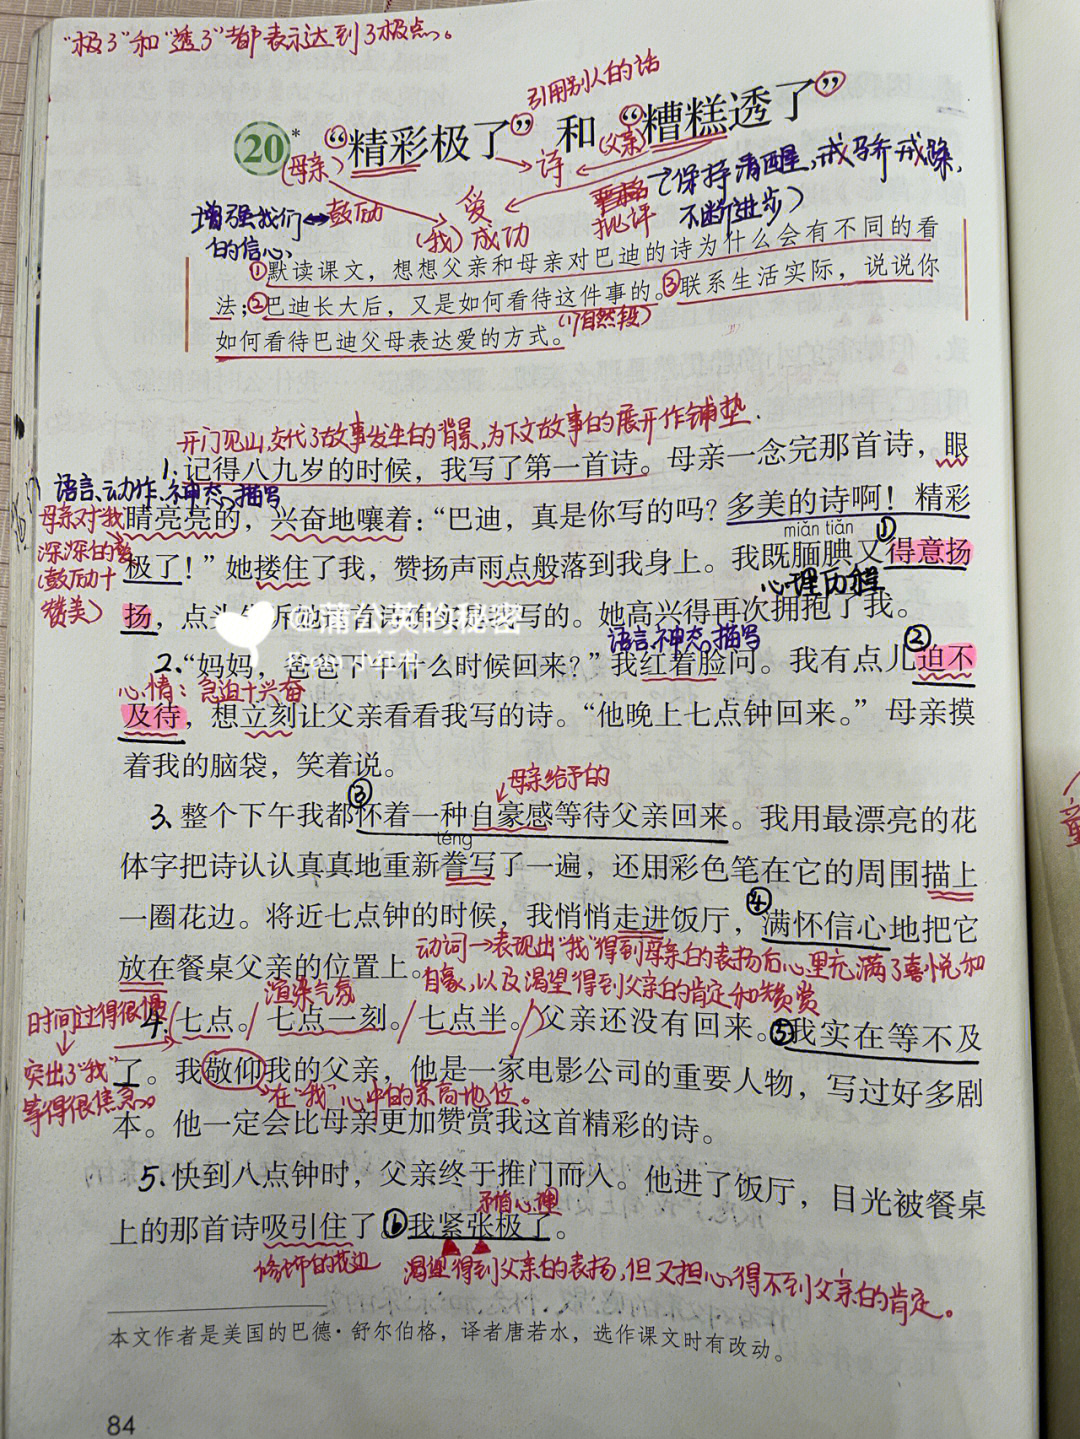 “极了”和“透了”都表示达到了极点。
引用别人的话
20* “精彩极了”和“糟糕透了”
(母亲) → 诗 ← (父亲)
(保持清醒,戒骄戒躁,
不断进步)
增强我们 ↔ 鼓励
的信心
爱
(我) 成功
批评
①默读课文，想想父亲和母亲对巴迪的诗为什么会有不同的看
法；②巴迪长大后，又是如何看待这件事的。③联系生活实际，说说你
如何看待巴迪父母表达爱的方式。(17自然段)
开门见山,交代了故事发生的背景,为下文故事的展开作铺垫.
1.记得八九岁的时候，我写了第一首诗。母亲一念完那首诗，眼
语言、动作、神态、描写
母亲对“我”
深深的
(鼓励+
赞美)
睛亮亮的，兴奋地嚷着：“巴迪，真是你写的吗？多美的诗啊！精彩
miǎn tiǎn ①
极了！”她搂住了我，赞扬声雨点般落到我身上。我既腼腆又得意扬
心理历程
扬，点头告诉她这首诗确实是我写的。她高兴得再次拥抱了我。
@蒲公英的秘密
语言、神态、描写 ②
2.“妈妈，爸爸下午什么时候回来？”我红着脸问。我有点儿迫不
心情：急迫+兴奋
及待，想立刻让父亲看看我写的诗。“他晚上七点钟回来。”母亲摸
着我的脑袋，笑着说。
母亲给予的
③
3、整个下午我都怀着一种自豪感等待父亲回来。我用最漂亮的花
téng
体字把诗认认真真地重新誊写了一遍，还用彩色笔在它的周围描上
④
一圈花边。将近七点钟的时候，我悄悄走进饭厅，满怀信心地把它
放在餐桌父亲的位置上。
动词→表现出“我”得到母亲的表扬后心里充满了喜悦和
自豪,以及渴望得到父亲的肯定和赞赏
渲染气氛
时间过得很慢
突出了“我”
等得很焦急。
4.七点。/七点一刻。/七点半。/父亲还没有回来。⑤我实在等不及
了。我敬仰我的父亲，他是一家电影公司的重要人物，写过好多剧
在“我”心中的崇高地位。
本。他一定会比母亲更加赞赏我这首精彩的诗。
5.快到八点钟时，父亲终于推门而入。他进了饭厅，目光被餐桌
矛盾心理
上的那首诗吸引住了。⑥我紧张极了。
修饰的花边
渴望得到父亲的表扬,但又担心得不到父亲的肯定。
本文作者是美国的巴德·舒尔伯格，译者唐若水，选作课文时有改动。
84